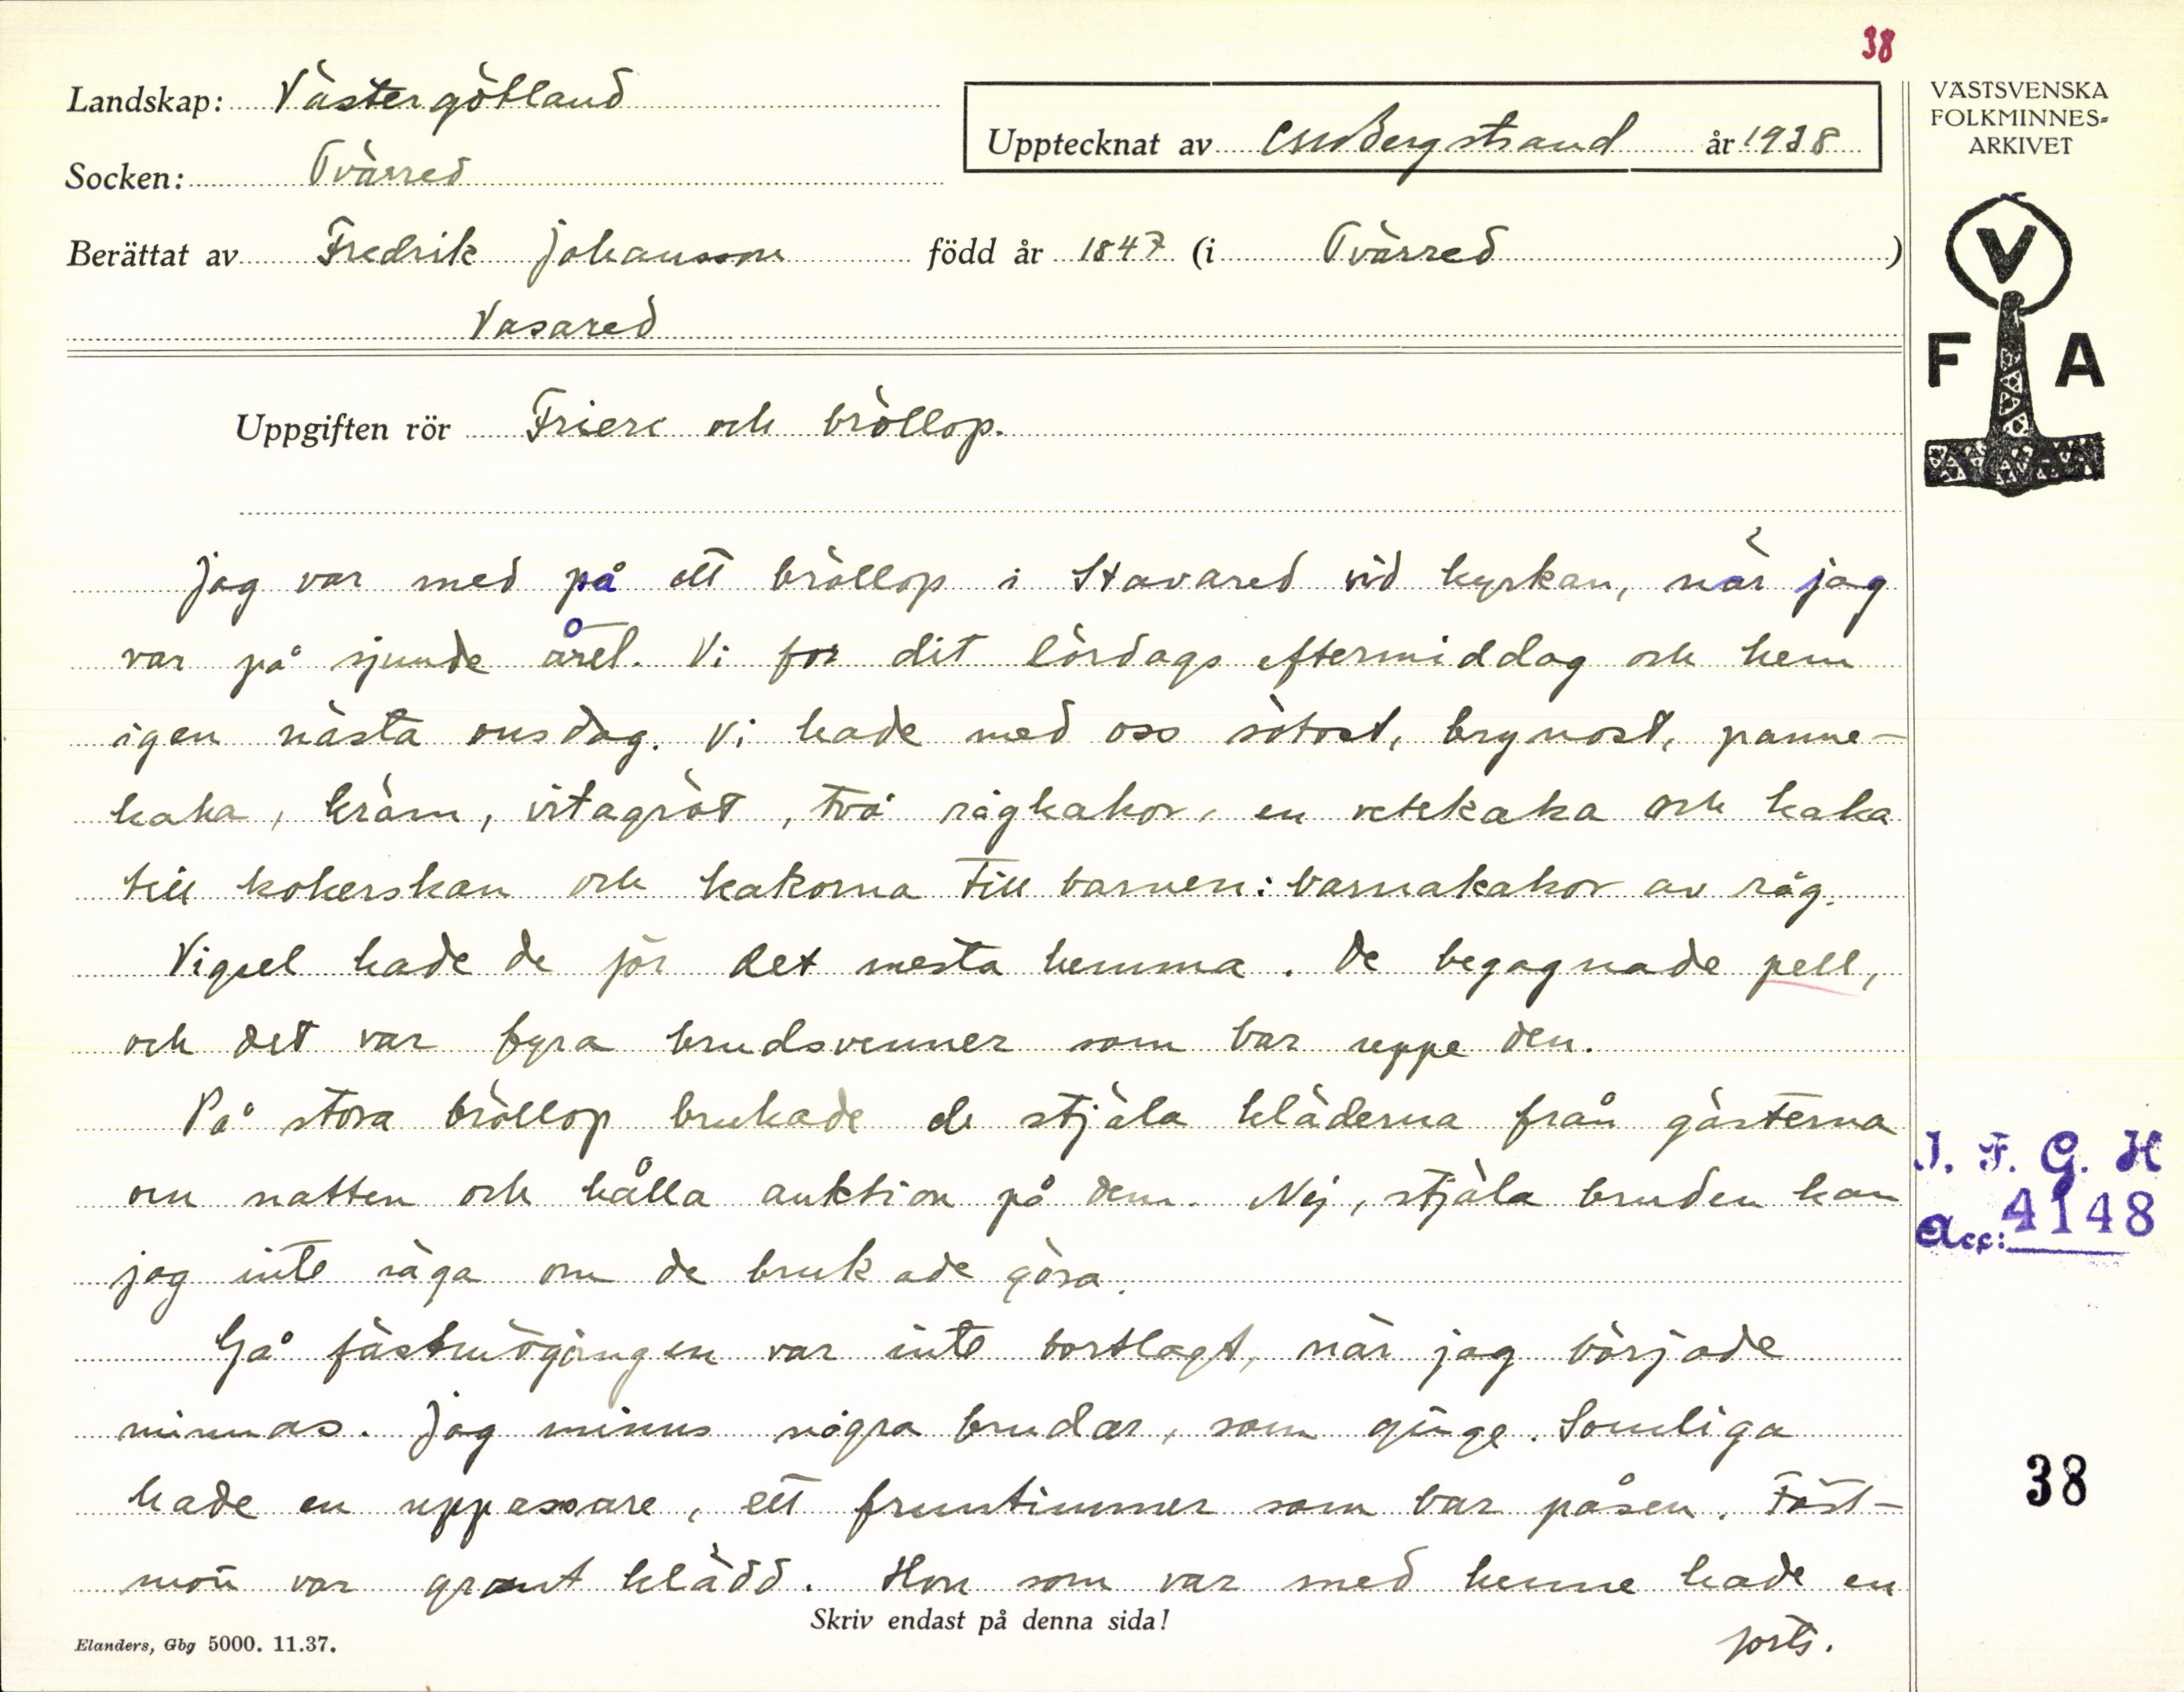 38
Landskap: Västergötland
Upptecknat av CMBergstrand år 1938
VÄSTSVENSKA
FOLKMINNES-
ARKIVET
Socken: Tvärred
Berättat av Fredrik Johansson född år 1847 (i Tvärred)
Vasared
V
F A
Uppgiften rör Frieri och bröllop.
Jag var med på ett bröllop i Stavared vid kyrkan, när jag
var på sjunde året. Vi for dit lördags eftermiddag och hem
igen nästa onsdag. Vi hade med oss sötost, brynost, panne-
kaka, kräm, vitagröt, två rågkakor, en vetekaka och kaka
till kokerskan och kakorna till barnen: barnakakor av råg.
Vigsel hade de för det mesta hemma. De begagnade pell,
och det var fyra brudsvenner som bar uppe den.
På stora bröllop brukade de stjäla kläderna från gästerna
om natten och hålla auktion på dem. Nej, stjäla bruden kan
jag inte säga om de brukade göra.
Gå fästmögången var inte bortlagt, när jag började
minnas. Jag minns några brudar, som ginge. Somliga
hade en uppassare, ett fruntimmer som bar påsen. Fäst-
mön var grant klädd. Hon som var med henne hade en
forts.
Skriv endast på denna sida!
Elanders, Gbg 5000. 11.37.
I. F. G. H
Acc: 4148
38